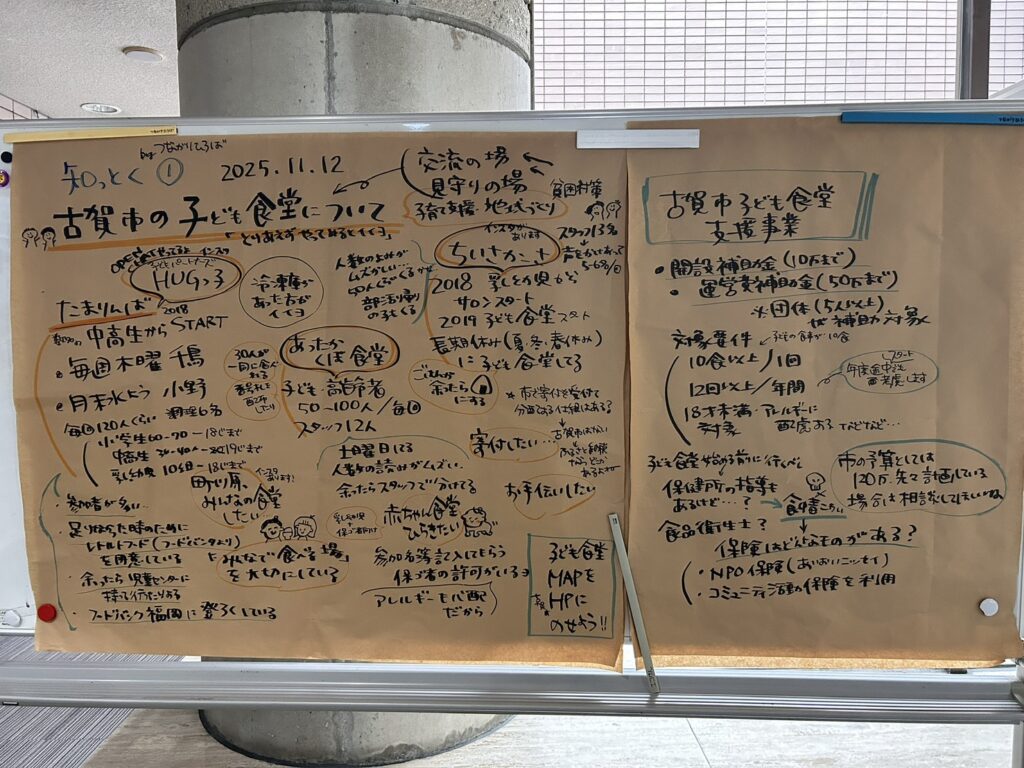 つながりひろば
知っとく① 2025.11.12
古賀市の子ども食堂について
「とりあえずやってみるとイイヨ」
交流の場
見守りの場
子育て支援 地域づくり
貧困対策
スタッフ13名
声をかけあって
5-6名/日
HUGっ子
たまりんば
2018
中高生からSTART
毎週木曜 千鳥
月末水よう 小野
毎回120人くらい 調理6名
小学生60-70-18じまで
中高生30-40人
乳幼児10組-18じまで
冷凍庫が
あった方が
イイヨ
30人が
一同に食べ
人数のよみが
ムズかしい
50人くらいくる
部活帰り
の子くる
あったか
くぼ食堂
子ども 高齢者
50~100人/毎回
スタッフ12人
土曜日してる
人数の読みがムズい
余ったらスタッフで分けてる
インスタが
あります
ちいさかーと
2018 乳とのひろ
サロンスタート
2019 子ども食堂スタート
長期休み(夏・冬・春休み)
に子ども食堂してる
ごはんが
余ったら
にする
寄付したい…
お手伝いしたい
参加者が多い…
足りなかった時のために
レトルトフード(フードバンクより)
を用意している
余ったら児童センターに
持って行ったりある
フードバンク福岡に登ろくしている
みんなの食堂
したい
「みんなで食べる場」
を大切にしている
赤ちゃん食堂
ひらきたい
参加名簿記入してもらう
保ご者の許可がいるヨ
アレルギーも心配
だから
子ども食堂
MAPを
古賀市HPに
のせよう!!
古賀市子ども食堂
支援事業
・開設補助金(10万まで)
・運営費補助金(50万まで)
※団体(5人以上)
が補助対象
対象要件
10食以上/1回
12回以上/年間
18才未満・アレルギーに
対象 配慮ある などなど…
スタート
年度途中でも
考慮します
子ども食堂始める前に行くべし
保健所の指導も
あるけど…?
食品衛生士?
食中毒こわい
保険はどんなものがある?
・NPO保険(あいおいニッセイ)
・コミュニティ活動の保険を利用
市の予算としては
120万。先で計画している
場合は相談してほしいな